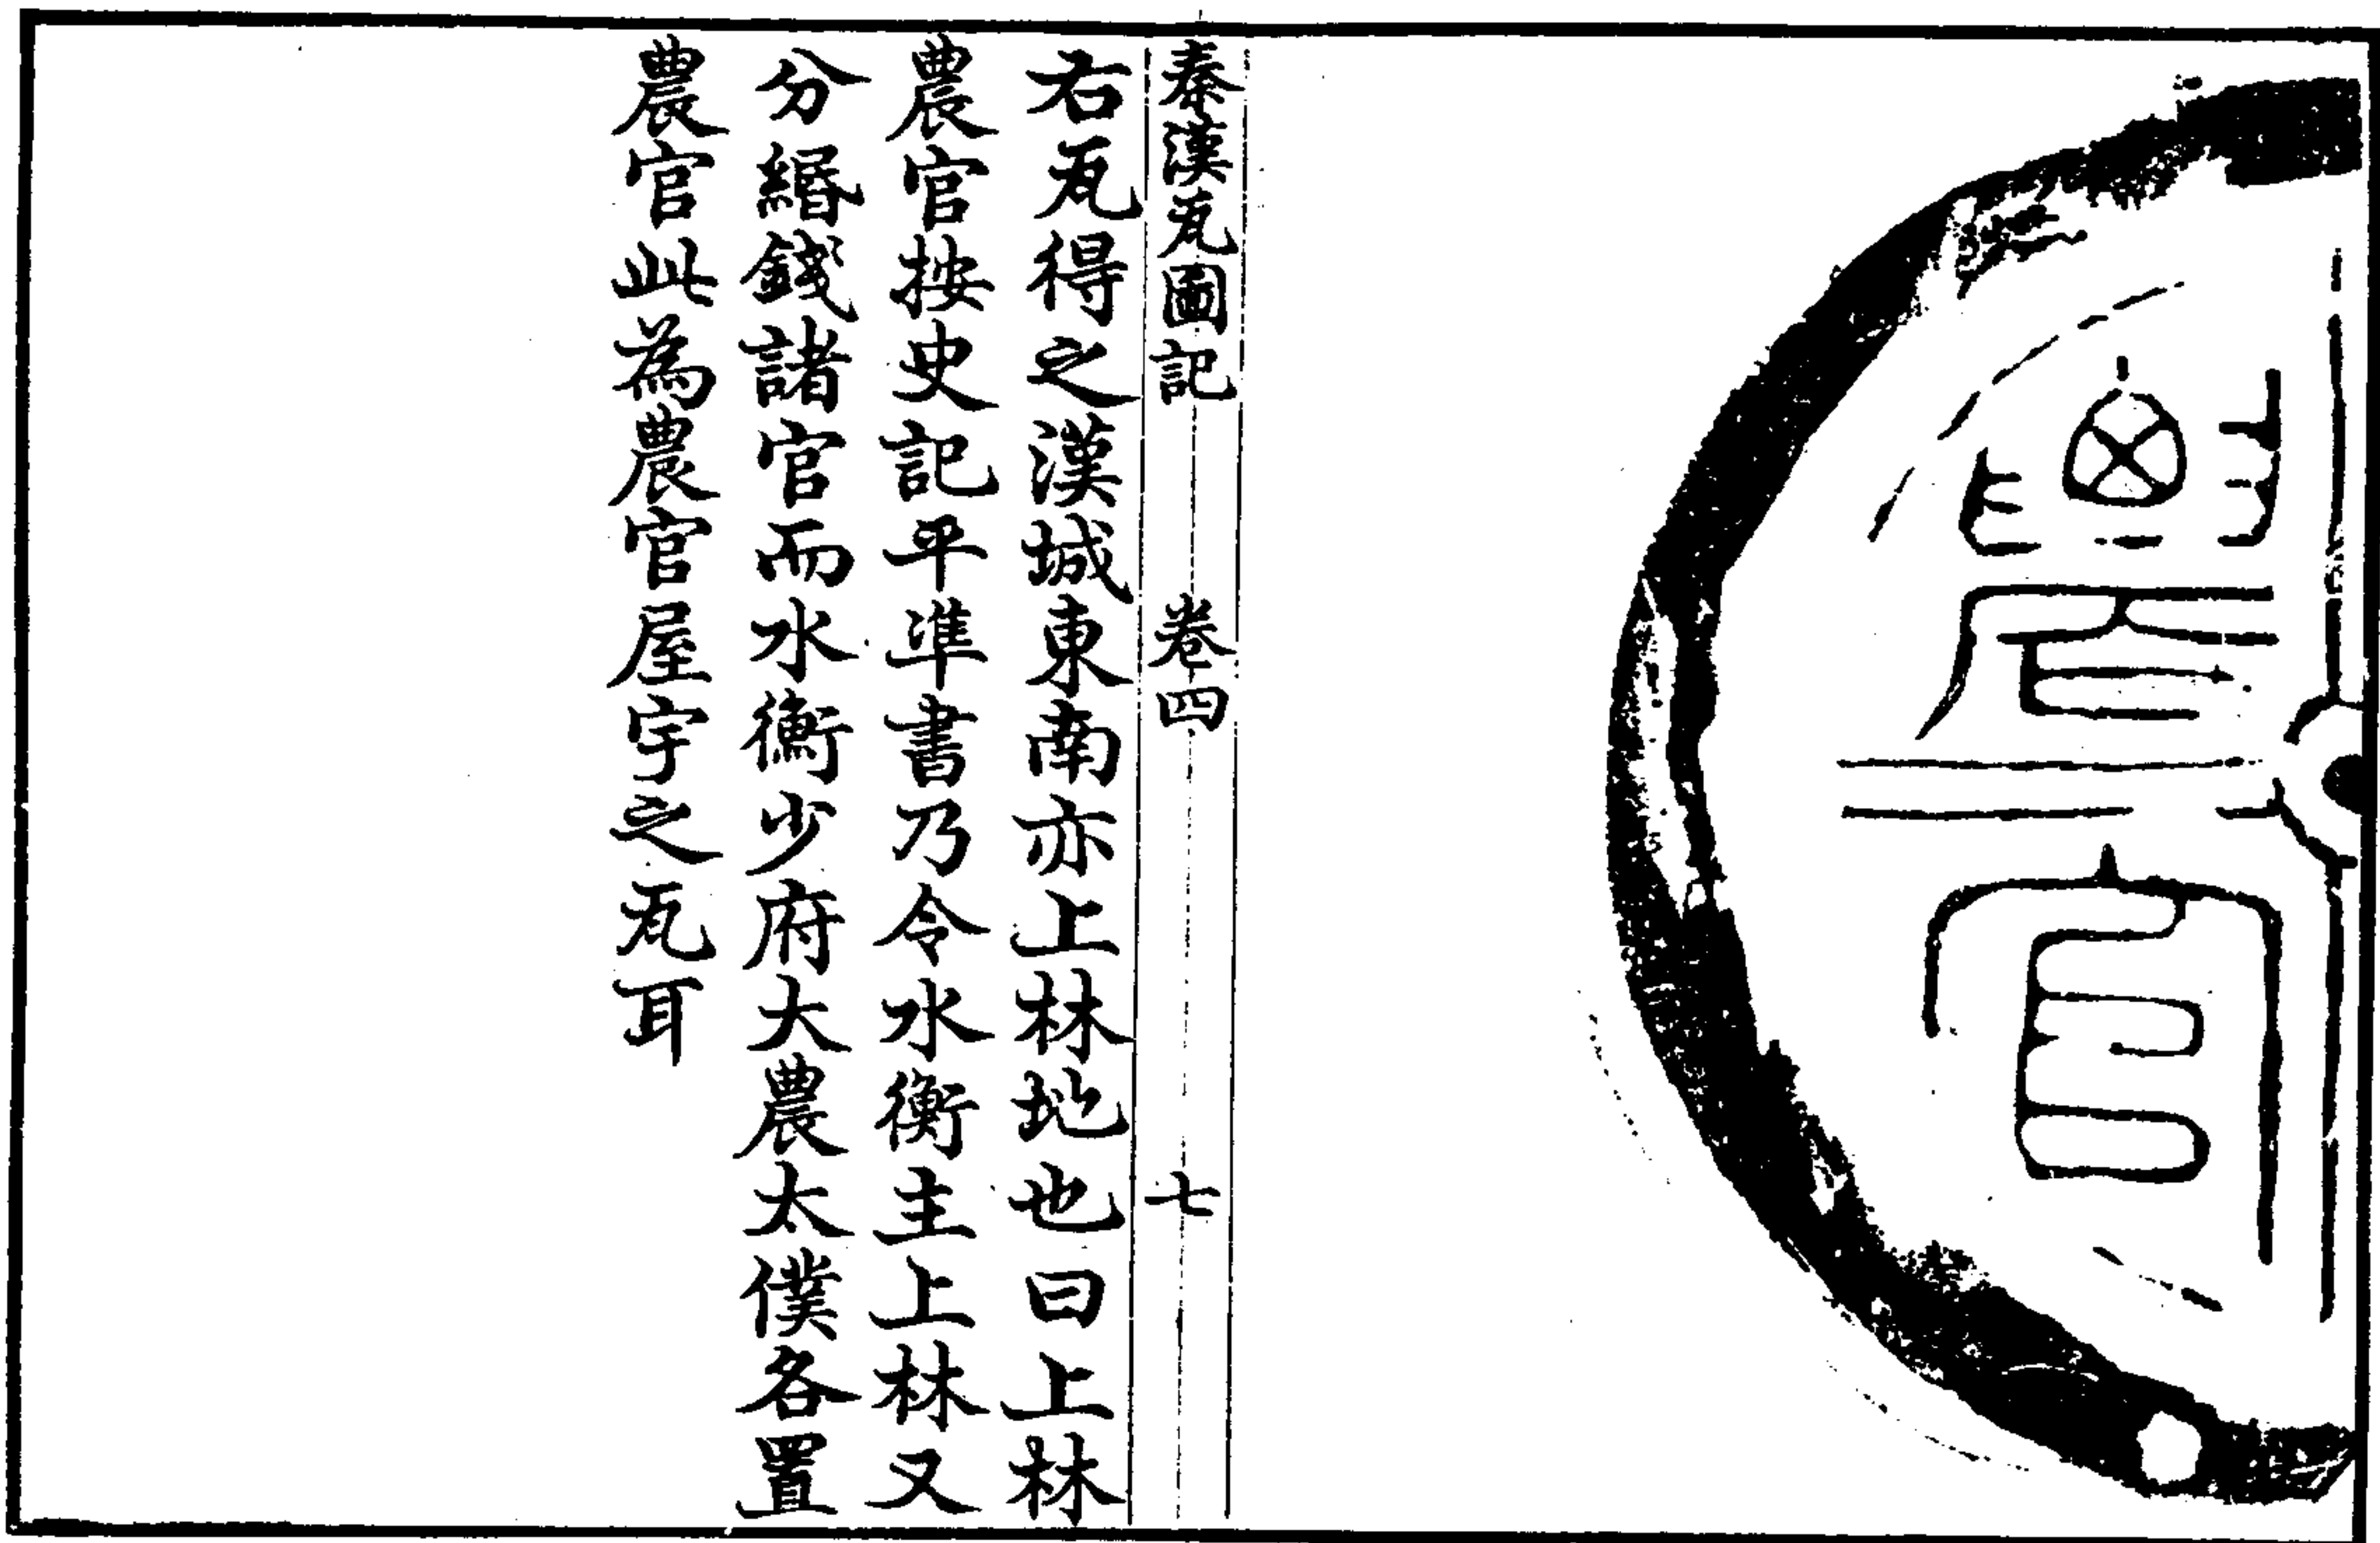 農官
秦漢瓦圖記 卷四 七
右瓦得之漢城東南亦上林地也曰上林
農官按史記平準書乃令水衡主上林又
分緡錢諸官而水衡少府大農太僕各置
農官此為農官屋宇之瓦耳